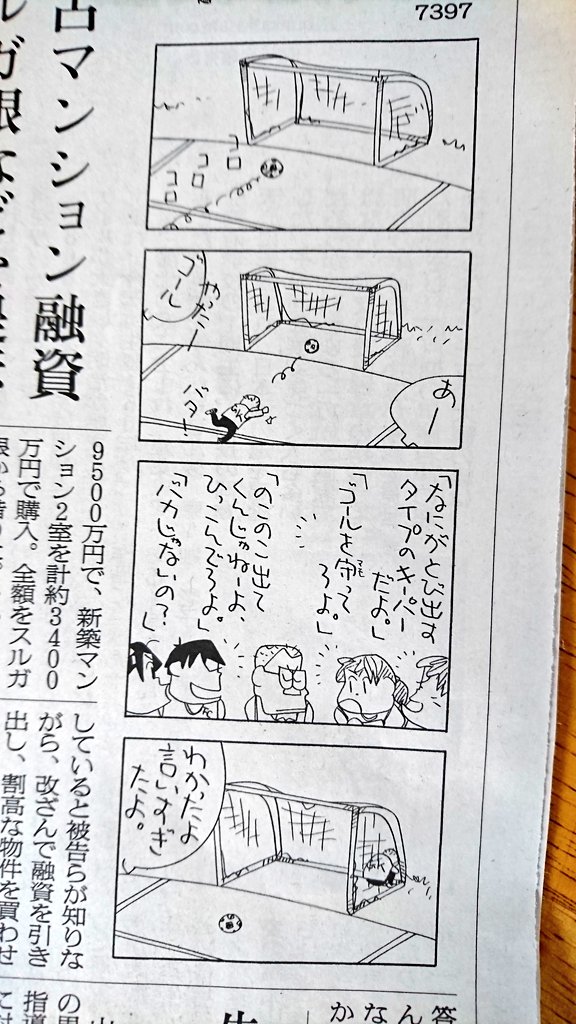 7397
コロ
コロ
コロ
あー
やったー
ゴール
バタ!
「なにがとび出す
タイプのキーパー
だよ。」
「ゴールを守って
ろよ。」
「のこのこ出て
くんじゃねーよ、
ひっこんでろよ。」
「バカじゃないの?」
わかったよ
言いすぎ
だよ。
古マンション融資
ルガ銀など
9500万円で、新築マン
ション2室を計約3400
万円で購入。全額をスルガ
していると被告らが知りな
がら、改ざんで融資を引き
出し、割高な物件を買わせ